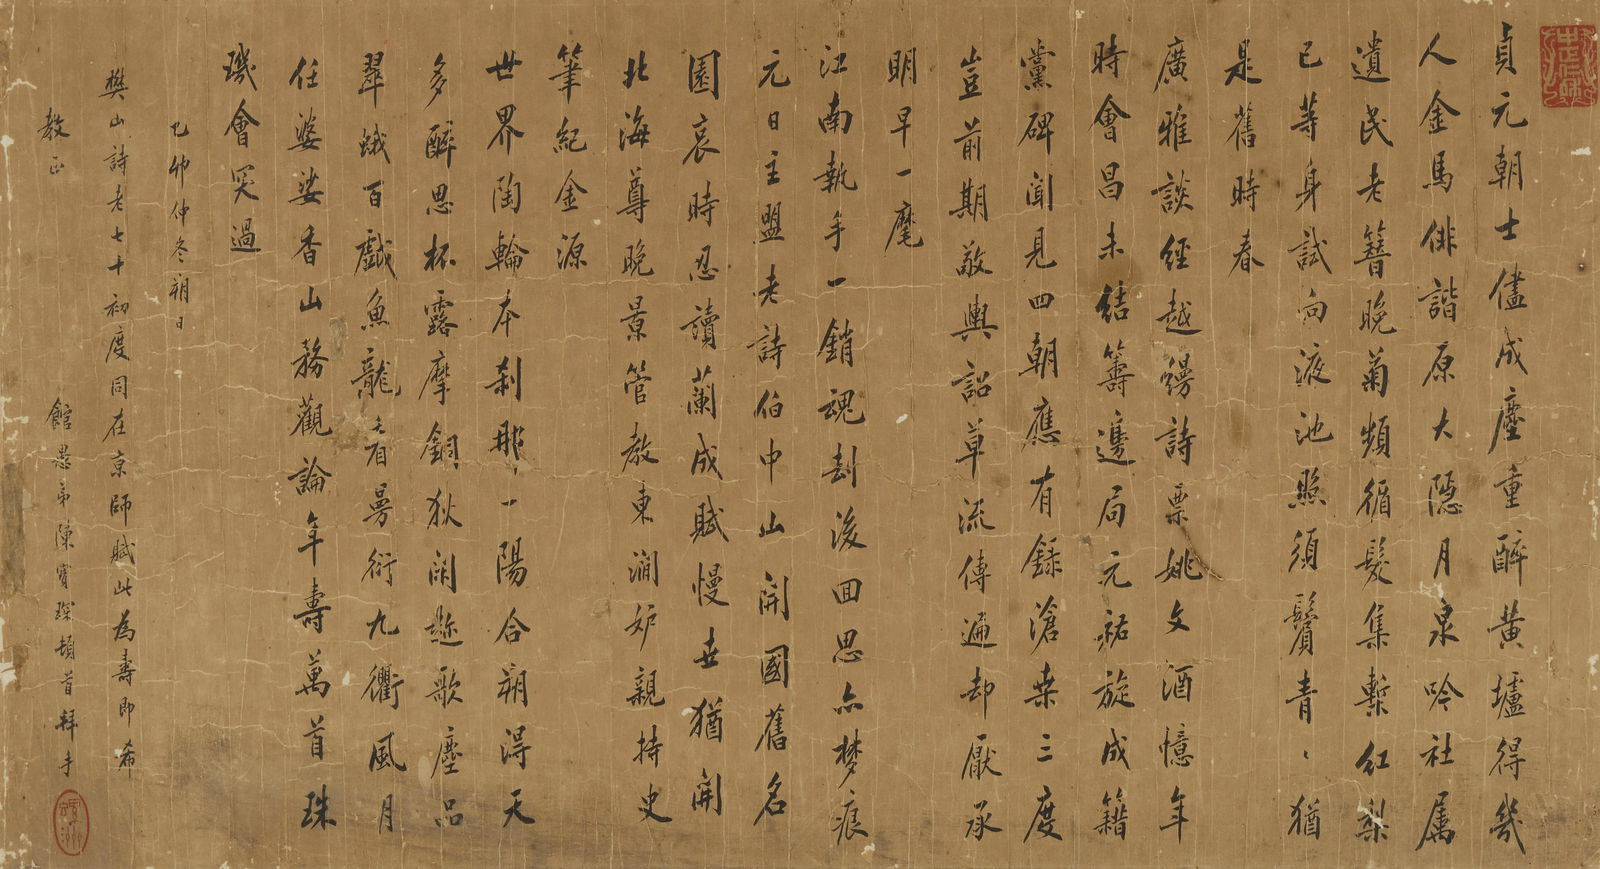 貞元朝士儘成塵重醉黃壚得幾
人金馬俳諧原大隱月泉吟社属
遺民老簪晚菊頻循髮集槧紅梨
已等身試向液池照須鬢青〻猶
是舊時春
廣雅談經越縵詩票姚文酒憶年
時會昌未結籌邊局元祐旋成籍
黨碑聞見四朝應有錄滄桑三度
豈前期敬輿詔草流傳遍却厭承
明早一麾
江南執手一銷魂刦後回思亦夢痕
元日主盟老詩伯中山開國舊名
園哀時忍讀蘭成賦慢世猶開
北海尊晚景管教東澗妒親持史
筆紀金源
世界陶輪本剎那一陽合朔得天
多醉思杯露摩銅狄閑遊歌塵品
翠蛾百戲魚龍看曼衍九衢風月
任婆娑香山務觀論年壽萬首珠
璣會突過
己卯仲冬朔日
樊山詩老七十初度同在京師賦此為壽即希
教正
館愚弟陳寶琛頓首拜手